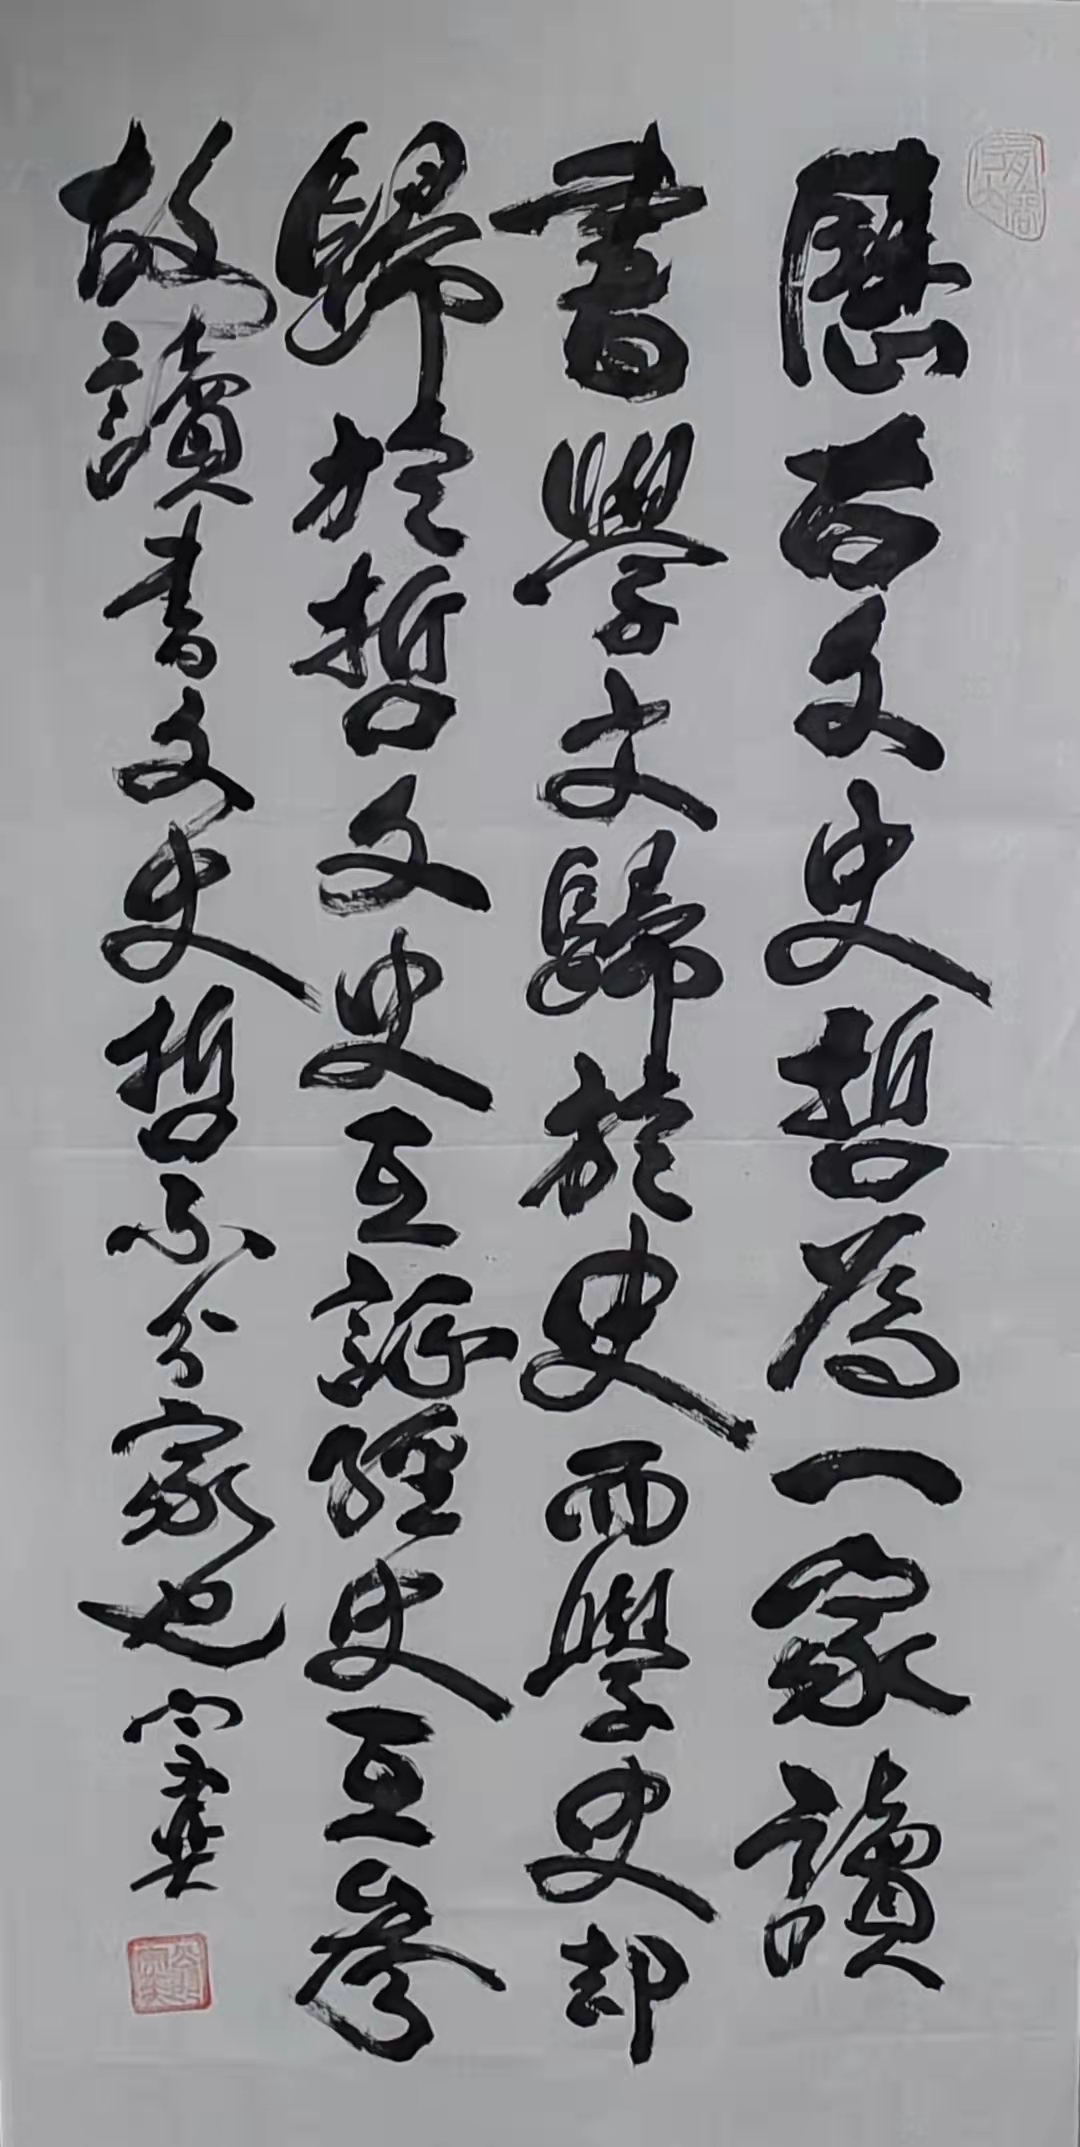 歷古文史哲為一家讀
書學文歸於史而學史却
歸於哲文史互証經史互參
故讀書文史哲不分家也